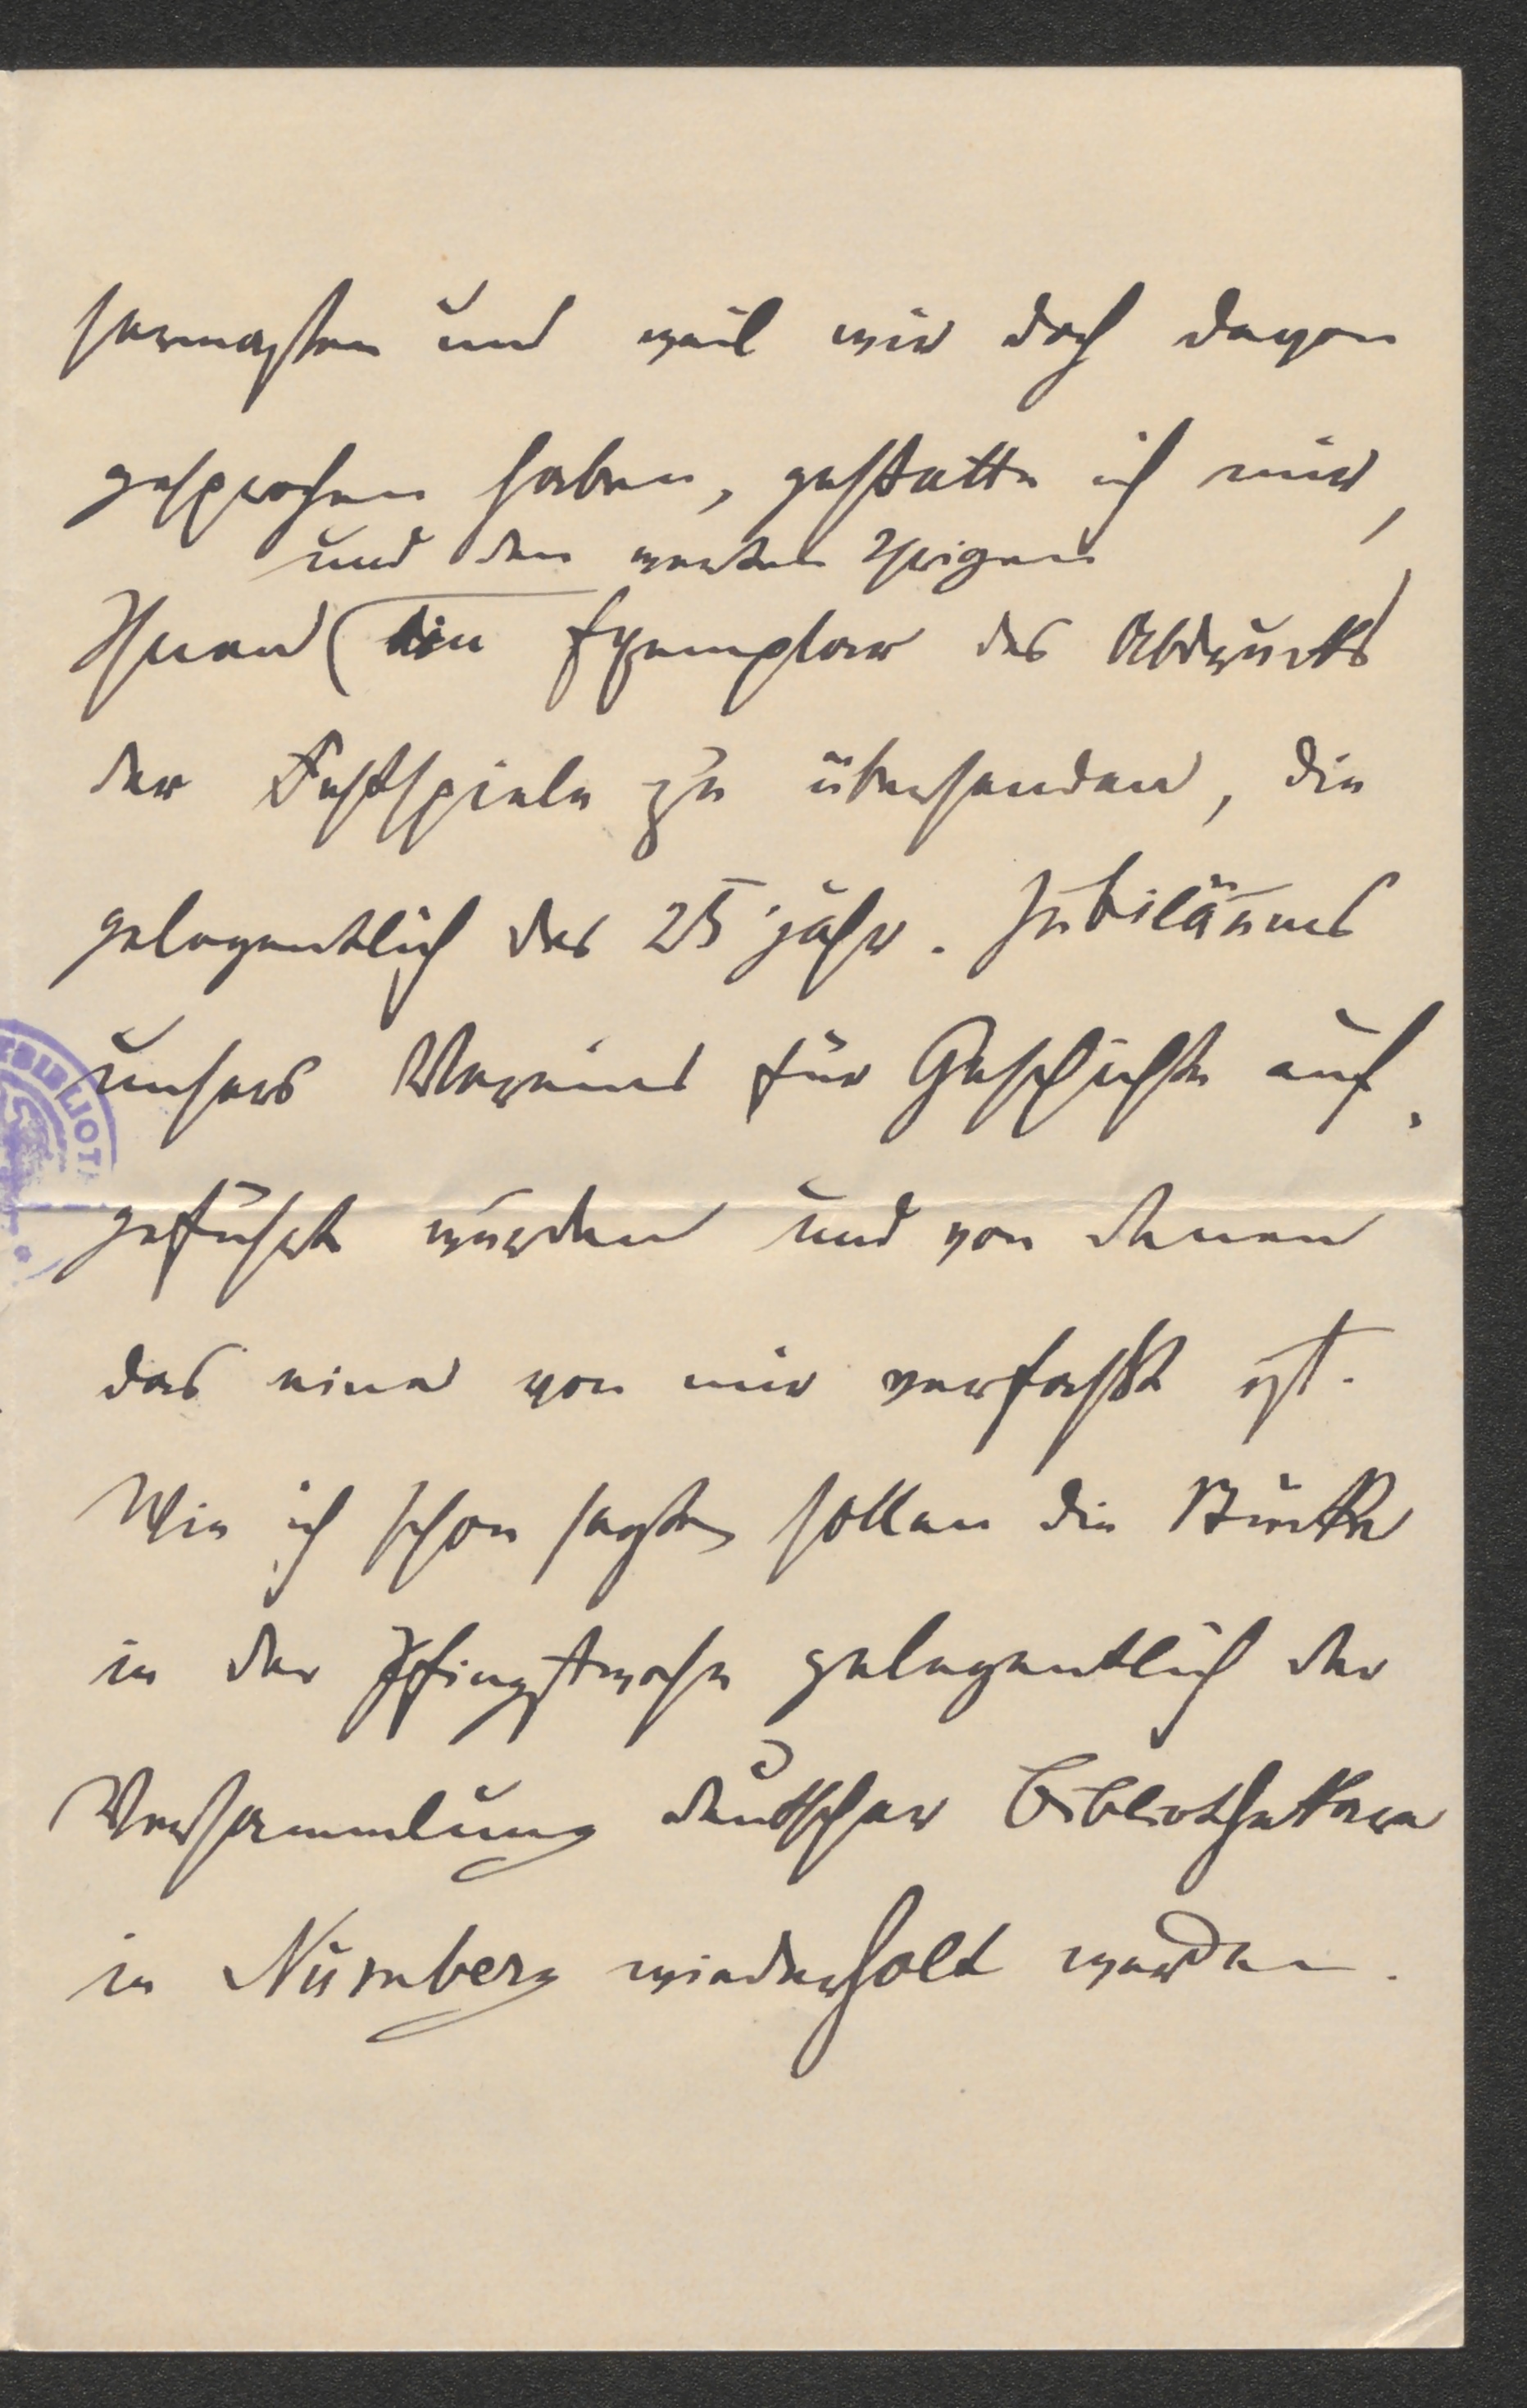 und weil wir doch davon
gesprochen haben, gestatte ich mir,
und den werten Ihrigen
Ihnen ein Exemplar des Abdrucks
der Festspiele zu übersenden, die
gelegentlich des 25 jähr. Jubiläums
unsers Vereins für Geschichte auf-
geführt wurden und von denen
das eine von mir verfaßt ist.
Wie ich schon sagte, sollen die Stücke
in der Pfingstwoche gelegentlich der
Versammlung deutscher Bibliothekare
in Nürnberg wiederholt werden.